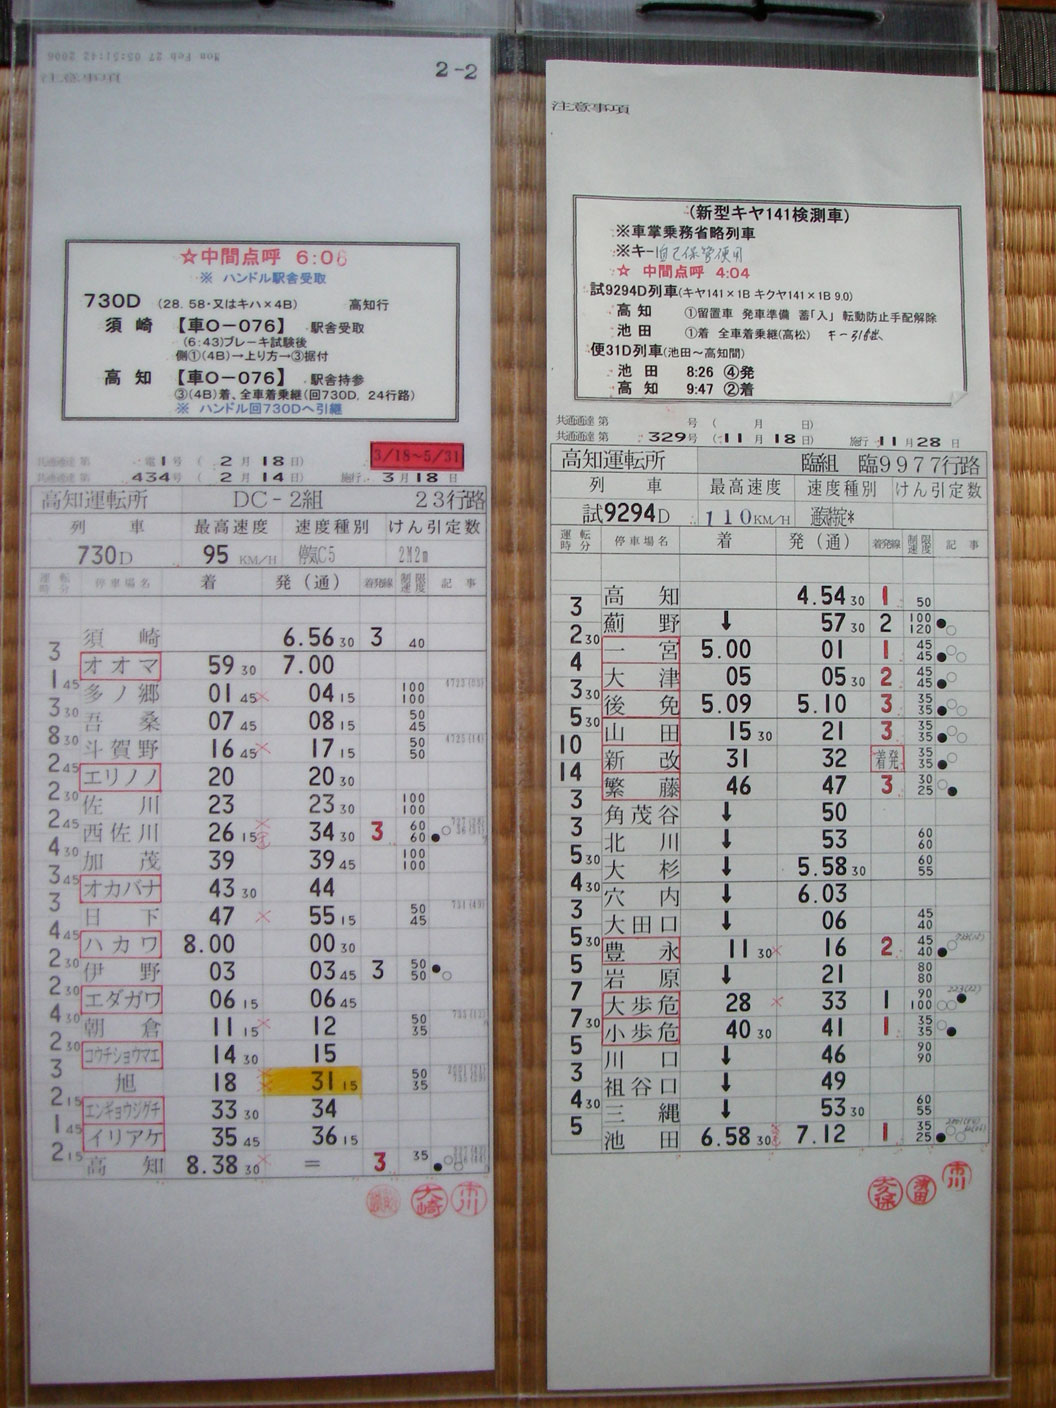 2-2
注意事項
☆中間点呼 6:06
※ ハンドル駅舎受取
730D (28.58・又はキハ×4B) 高知行
須崎 【車O-076】 駅舎受取
(6:43)ブレーキ試験後
側①(4B)→上り方→③据付
高知 【車O-076】 駅舎持参
③(4B)着、全車着乗継(回730D, 24行路)
※ ハンドル回730Dへ引継
3/18~5/31
共通通達 第 電1号 ( 2月18日)
共通通達 第 434号 ( 2月14日) 施行 3月18日
高知運転所 DC-2組 23行路
列車 最高速度 速度種別 けん引定数
730D 95 KM/H 停気C5
運転時分 停車場名 着 発(通) 着発線 制限速度 記事
須崎 6.56 30 3 40
3
オオマ 59 30 7.00
1 45
多ノ郷 01 45 04 15 100 100
3 30
吾桑 07 45 08 15 50 45
8 30
斗賀野 16 45 17 15 50 50
2 45
エリノノ 20 20 30
2 30
佐川 23 23 30 100 100
2 45
西佐川 26 15 34 30 3 60 60
4 30
加茂 39 39 45 100 100
3 45
オカバナ 43 30 44
3
日下 47 55 15 50 45
4 45
ハカワ 8.00 00 30
2 30
伊野 03 03 45 3 50 50
2 30
エダガワ 06 15 06 45
4 30
朝倉 11 15 12 50 35
2 30
コウチショウマエ 14 30 15
3
旭 18 31 15 50 35
2 15
エンギョウジグチ 33 30 34
1 45
イリアケ 35 45 36 15
2 15
高知 8.38 30 = 3 35
大崎
市川
注意事項
(新型キヤ141検測車)
※車掌乗務省略列車
※キー自己保管使用
☆ 中間点呼 4:04
試9294D列車(キヤ141×1B キクヤ141×1B 9.0)
高知 ①留置車 発車準備 蓄「入」 転動防止手配解除
池田 ①着 全車着乗継(高松)
便31D列車(池田~高知間)
池田 8:26 ④発
高知 9:47 ②着
共通通達 第 号 ( 月 日)
共通通達 第 329号 (11月18日) 施行 11月28日
高知運転所 臨組 臨9977行路
列車 最高速度 速度種別 けん引定数
試9294D 110KM/H
運転時分 停車場名 着 発(通) 着発線 制限速度 記事
高知 4.54 30 1 50
3
薊野 ↓ 57 30 2 100 120
2 30
一宮 5.00 01 1 45 45
4
大津 05 05 30 2 45 45
3 30
後免 5.09 5.10 3 35 35
5 30
山田 15 30 21 3 35 35
10
新改 31 32 着発 35 35
14
繁藤 46 47 3 30 25
3
角茂谷 ↓ 50
3
北川 ↓ 53 60 60
5 30
大杉 ↓ 5.58 30 60 55
4 30
穴内 ↓ 6.03
3
大田口 ↓ 06 45 40
5 30
豊永 11 30 16 2 45 40
5
岩原 ↓ 21 80 80
7
大歩危 28 33 1 90 100
7 30
小歩危 40 30 41 1 35 35
5
川口 ↓ 46 90 90
3
祖谷口 ↓ 49
4 30
三縄 ↓ 53 30 60 55
5
池田 6.58 30 7.12 1 35 25
市川